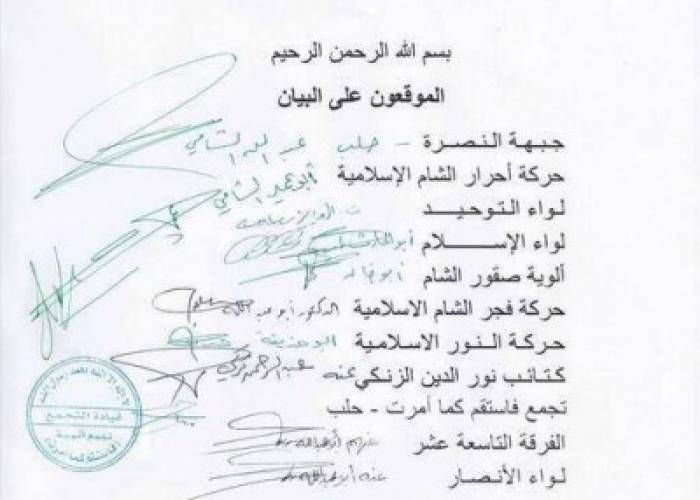 بسم الله الرحمن الرحيم
الموقعون على البيان
جبهة النصرة – حلب عبد الله الشامي
حركة أحرار الشام الإسلامية
لواء التوحيد
لواء الإســـلام
ألوية صقور الشام أبو خالد
حركة فجر الشام الاسلامية الدكتور أبو عبد الله
حركة النور الاسلامية أبو حذيفة
كتائب نور الدين الزنكي عنه
تجمع فاستقم كما أمرت - حلب
الفرقة التاسعة عشر عنهم أبو عبدالله
لواء الأنصار عنه أبو عبدالله
قيادة التجمع